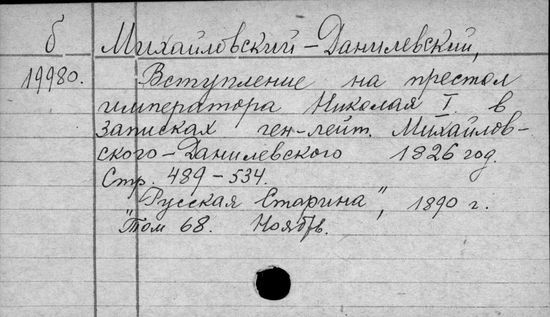 б Михайловский-Данилевский,
19980. Вступление на престол
императора Николая I. в
записках ген-лейт. Михайлов-
ского-Данилевского 1826 год.
Стр. 489-534.
"Русская Старина", 1890 г.
Том 68. Ноябрь.